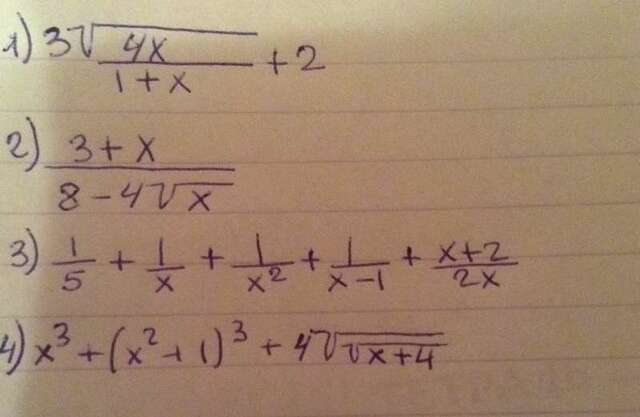 1) 3√(4x/(1+x)) + 2
2) (3+x)/(8-4√x)
3) 1/5 + 1/x + 1/x² + 1/(x-1) + (x+2)/(2x)
4) x³ + (x²+1)³ + 4√(√(x+4))